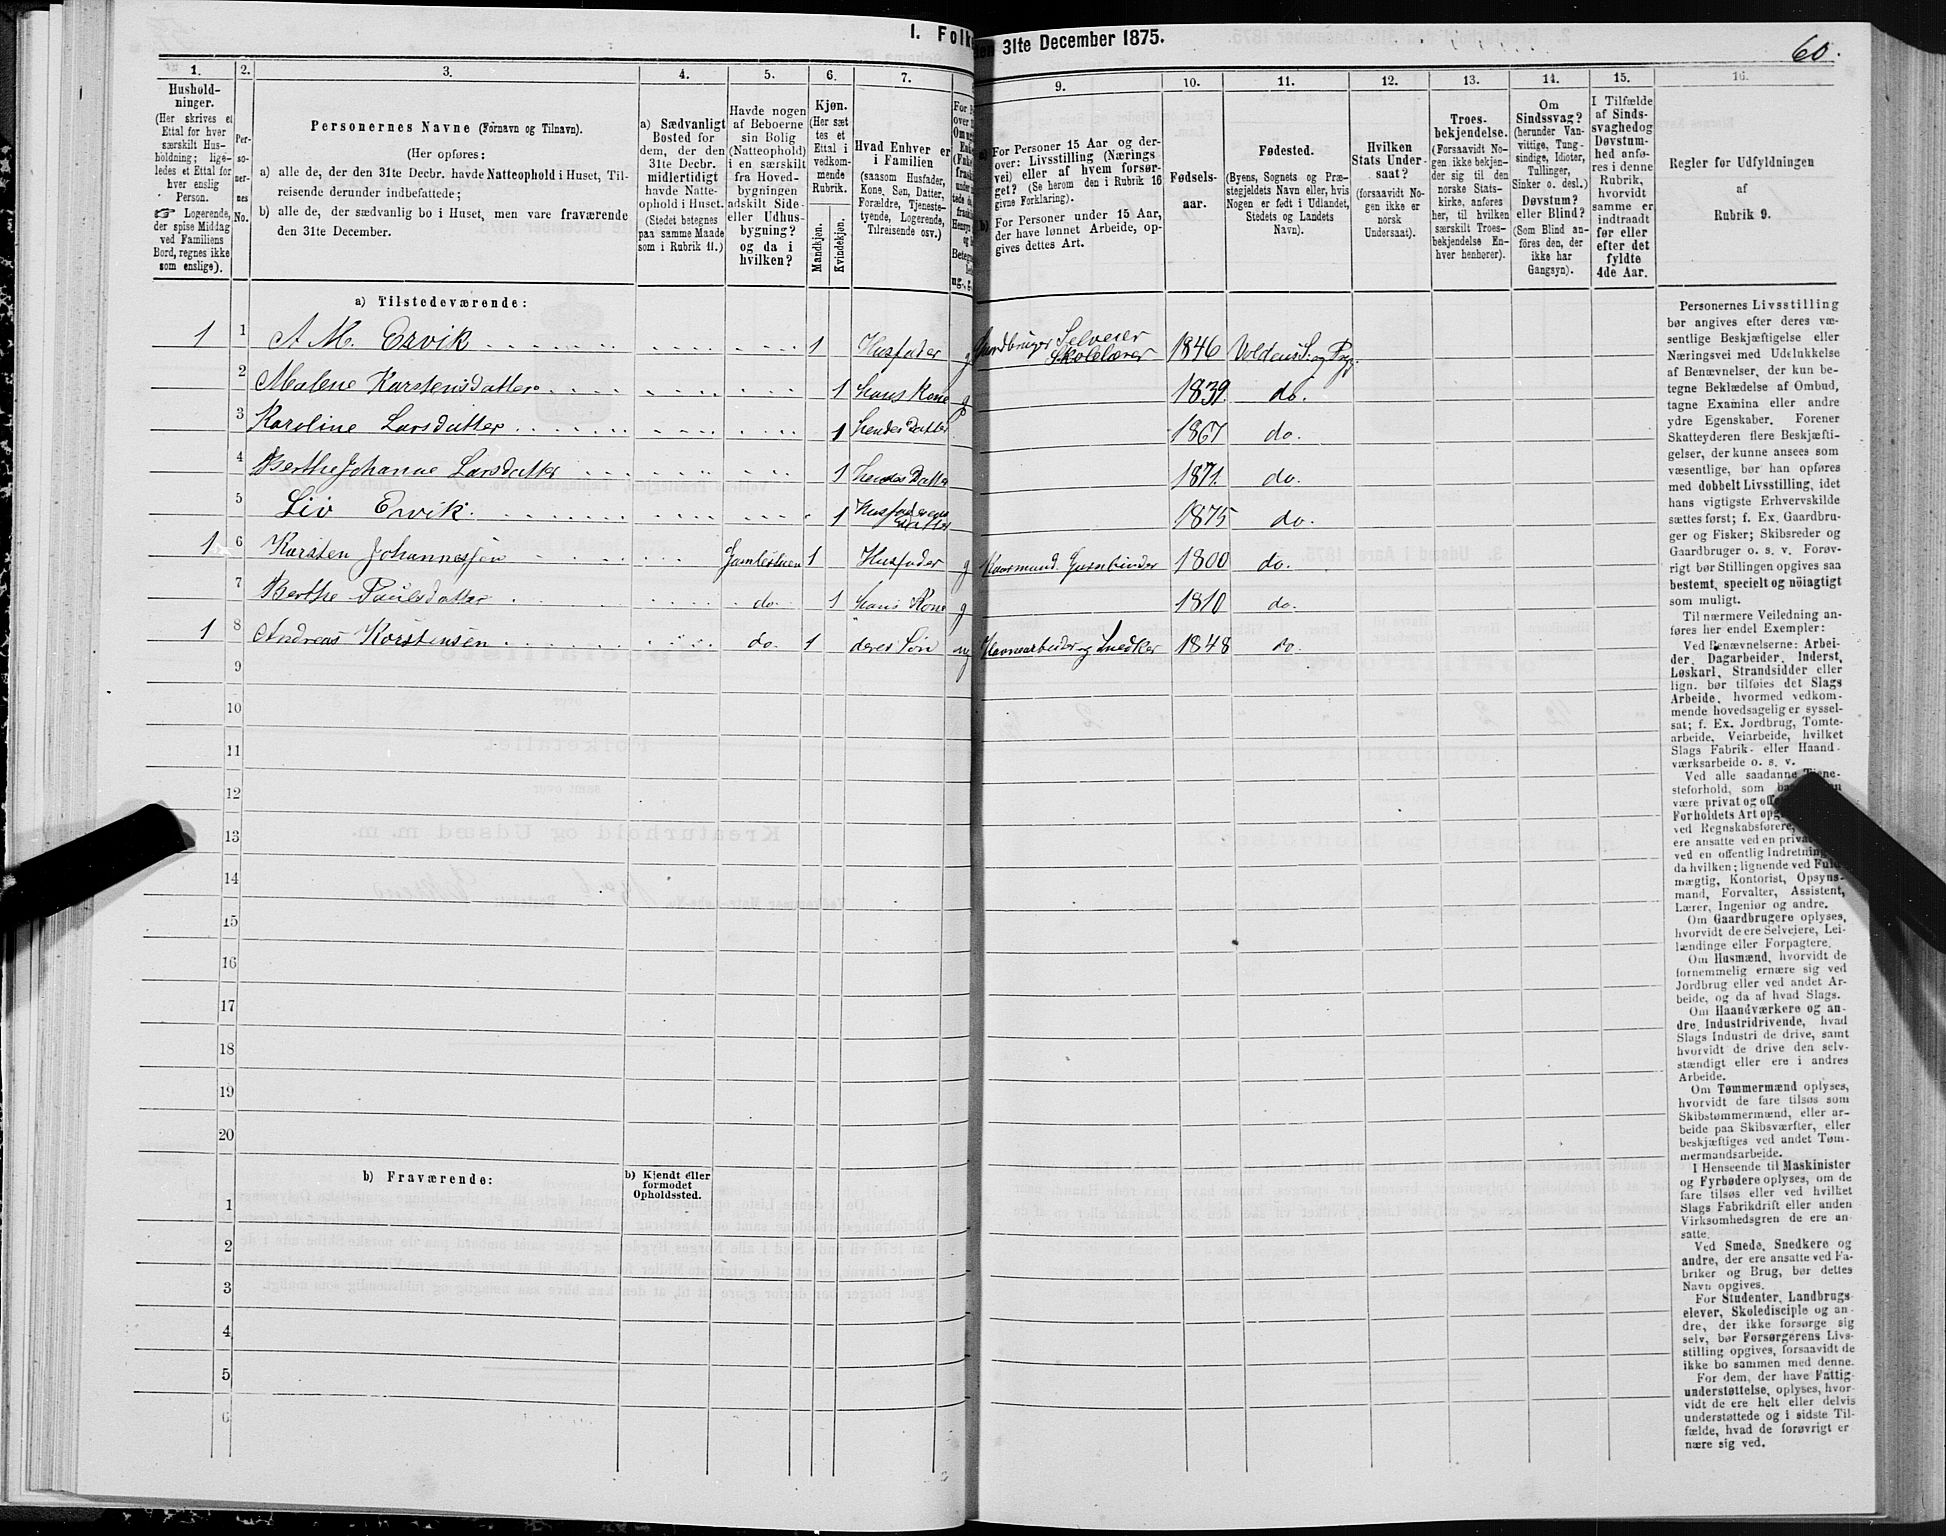 I. Folke
den 31te December 1875.
60.
1.
2.
3.
4.
5.
6.
7.
9.
10.
11.
12.
13.
14.
15.
16.
Hushold-
ninger.
(Her skrives et
Ettal for hver
særskilt Hus-
holdning; lige-
ledes et Ettal for
hver enslig
Person.
☞ Logerende,
der spise Middag
ved Familiens
Bord, regnes ikke
som enslige).
Per-
so-
ner-
nes
No.
Personernes Navne (Fornavn og Tilnavn).
(Her opføres:
a) alle de, der den 31te Decbr. havde Natteophold i Huset, Til-
reisende derunder indbefattede;
b) alle de, der sædvanlig bo i Huset, men vare fraværende
den 31te December.
a) Sædvanligt
Bosted for
dem, der den
31te Decbr.
midlertidigt
havde Natte-
ophold i Huset.
(Stedet betegnes
paa samme Maade
som i Rubrik 11.)
Havde nogen
af Beboerne
sin Bolig
(Natteophold)
i en særskilt
fra Hoved-
bygningen
adskilt Side-
eller Udhus-
bygning?
og da i
hvilken?
Kjøn.
(Her sæt-
tes et
Ettal i
vedkom-
mende
Rubrik.
Mandkjøn.
Kvindekjøn.
Hvad Enhver er
i Familien
(saasom Husfader,
Kone, Søn, Datter,
Forældre, Tjeneste-
tyende, Logerende,
Tilreisende osv.)
a) For Personer 15 Aar og der-
over: Livsstilling (Nærings
vei) eller af hvem forsør-
get? (Se herom den i Rubrik 16
givne Forklaring).
b) For Personer under 15 Aar,
der have lønnet Arbeide, op-
gives dettes Art.
Fødsels-
aar.
Fødested.
(Byens, Sognets og Præ-
stegjeldets Navn eller, hvis
Nogen er født i Udlandet,
Stedets og Landets
Navn).
Hvilken
Stats Under-
saat?
(forsaavidt No-
gen ikke er
norsk
Undersaat).
Troes-
bekjendelse.
(Forsaavidt No-
gen ikke bekjen-
der sig til den
norske Stats-
kirke, anføres
her, til hvilken
særskilt Troes-
bekjendelse En-
hver henhører).
Om
Sindssvag?
(herunder Van-
vittige, Tung-
sindige, Idioter,
Tullinger,
Sinker o. desl.)
Døvstum?
eller Blind?
(Som Blind an-
føres den, der
ikke har
Gangsyn).
I Tilfælde
af Sinds-
svaghedog
Døvstum-
hed anfø-
res i denne
Rubrik,
hvorvidt
samme er
indtraadt
før eller
efter det
fyldte
4de Aar.
Regler for Udfyldningen
af
Rubrik 9.
a) Tilstedeværende:
1 1 A M. Ervik 1 Husfader g Gaardbruger Selveier Skolelærer 1846 Voldens S. og Pgj.
2 Malene Karstensdatter 1 Hans Kone g 1839. do.
3 Karoline Larsdatter 1 Hendes Datter 1867 do.
4 Berthe Johanne Larsdatter 1 Hendes Datter 1871. do.
5 Liv Ervik 1 Husfaderens Datter 1875 do.
1 6 Karsten Johannessen 1 Husfader g 1800 do.
7 Berthe Paulsdatter do. 1 Hans Kone g 1810 do.
1 8 Andreas Karstensen do. 1 deres Søn ug Havnearbeider og Snedker 1848 do.
9
10
11
12
13
14
15
16
17
18
19
20
b) Fraværende:
b) Kjendt eller
formodet
Opholdssted.
1
2
3
4
5
6
Personernes Livsstilling
bør angives efter deres væ-
sentlige Beskjæftigelse eller
Næringsvei med Udelukkelse
af Benævnelser, der kun be-
tegne Beklædelse af Ombud,
tagne Examina eller andre
ydre Egenskaber. Forener
Skatteyderen flere Beskjæfti-
gelser, der kunne ansees som
væsentlige, bør han opføres
med dobbelt Livsstilling, idet
hans vigtigste Erhvervskilde
sættes først; f. Ex. Gaardbru-
ger og Fisker; Skibsreder og
Gaardbruger o. s. v. Forøv-
rigt bør Stillingen opgives saa
bestemt, specielt og nöiagtigt
som muligt.
Til nærmere Veiledning an-
føres her endel Exempler:
Ved Benævnelserne: Arbei-
der, Dagarbeider, Inderst,
Løskarl, Strandsidder eller
lign. bør tilføies det Slags
Arbeide, hvormed vedkom-
mende hovedsagelig er syssel-
sat; f. Ex. Jordbrug, Tomte-
arbeide, Veiarbeide, hvilket
Slags Fabrik- eller Haand-
værksarbeide o. s. v.
Ved alle saadanne Tjene-
steforhold, som
være privat og
Forholdets Art
ved Regnskabsførere,
ere ansatte ved en
ved en offentlig Indretning
da hvilken; lignende ved Fuld-
mægtig, Kontorist, Opsyns-
mand, Forvalter, Assistent,
Lærer, Ingeniør og andre.
Om Gaardbrugere oplyses,
hvorvidt de ere Selveiere, Lei-
lændinge eller Forpagtere.
Om Husmænd, hvorvidt de
fornemmelig ernære sig ved
Jordbrug eller ved andet Ar-
beide, og da af hvad Slags.
Om Haandværkere og an-
dre Industridrivende, hvad
Slags Industri de drive, samt
hvorvidt de drive den selv-
stændigt eller ere i andres
Arbeide.
Om Tømmermænd oplyses,
hvorvidt de fare tilsøs som
Skibstømmermænd, eller ar-
beide paa Skibsværfter, eller
beskjæftiges ved andet Tøm-
mermandsarbeide.
I Henseende til Maskinister
og Fyrbødere oplyses, om de
fare tilsøs eller ved hvilket
Slags Fabrikdrift eller anden
Virksomhedsgren de ere an-
satte.
Ved Smede, Snedkere og
andre, der ere ansatte ved Fa-
briker og Brug, bør dettes
Navn opgives.
For Studenter, Landbrugs-
elever, Skoledisciple og an-
dre, der ikke forsørge sig
selv, bør Forsørgerens Livs-
stilling opgives, forsaavidt de
ikke bo sammen med denne.
For dem, der have Fattig-
understøttelse, oplyses, hvor-
vidt de ere helt eller delvis
understøttede og i sidste Til-
fælde, hvad de forøvrigt er
nære sig ved.